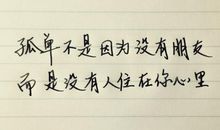 孤单不是因为没有朋友
而是没有人住在你心里